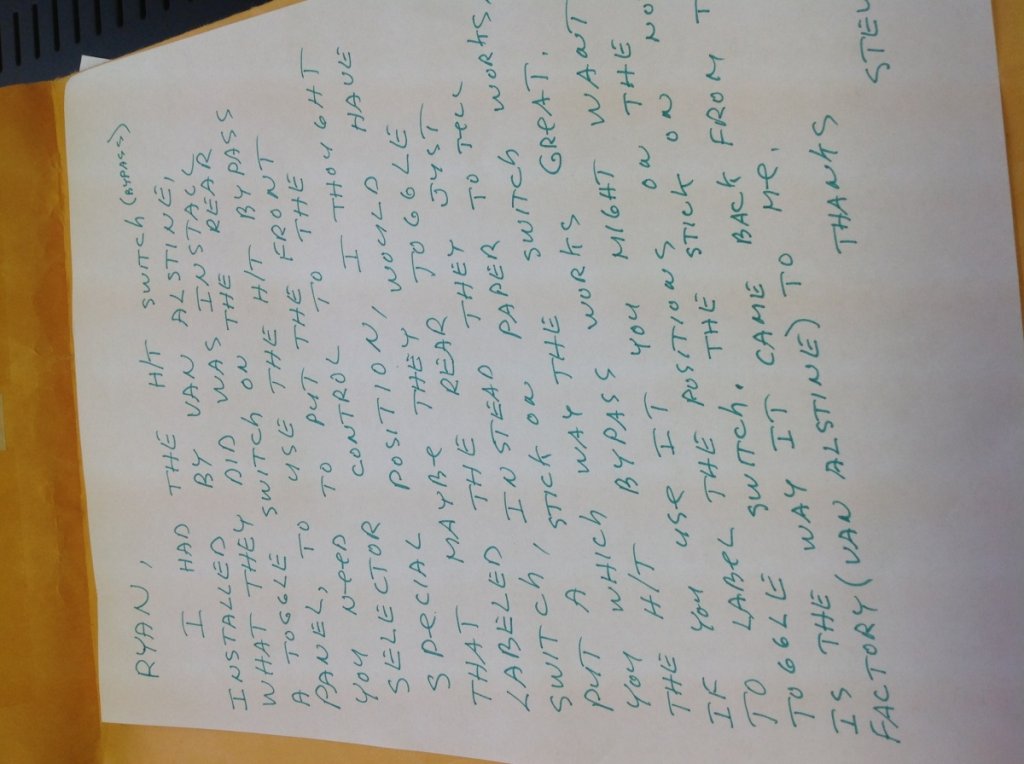 RYAN,
I HAD THE H/T SWITCH (BYPASS)
INSTALLED BY VAN ALSTINE,
WHAT THEY DID WAS INSTALL
A TOGGLE SWITCH ON THE REAR
PANEL, TO USE THE H/T BYPASS
YOU NEED TO PUT THE FRONT
SELECTOR CONTROL TO THE
SPECIAL POSITION, I THOUGHT
THAT MAYBE THEY WOULD HAVE
LABELED THE REAR TOGGLE
SWITCH, INSTEAD THEY JUST
PUT A STICK ON PAPER TO TELL
YOU WHICH WAY THE SWITCH WORKS,
THE H/T BYPASS WORKS GREAT.
IF YOU USE IT YOU MIGHT WANT
TO LABEL THE POSITIONS ON THE
TOGGLE SWITCH. THE STICK ON NO
IS THE WAY IT CAME BACK FROM T
FACTORY (VAN ALSTINE) TO ME.
THANKS